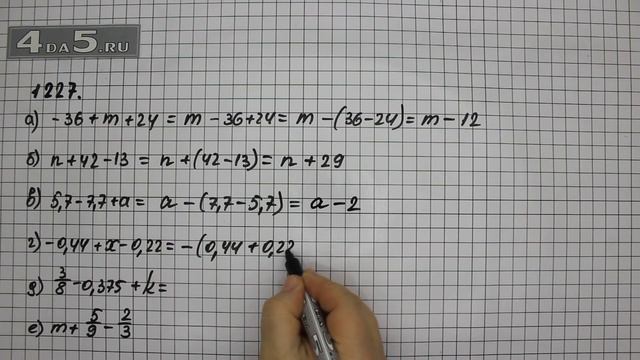 4DA5.RU
1227.
а) -36+m+24 = m-36+24 = m-(36-24) = m-12
б) n+42-13 = n+(42-13) = n+29
в) 5,7-7,7+a = a-(7,7-5,7) = a-2
г) -0,44+x-0,22 = -(0,44+0,22
д) 3/8-0,375+k=
е) m+5/9-2/3